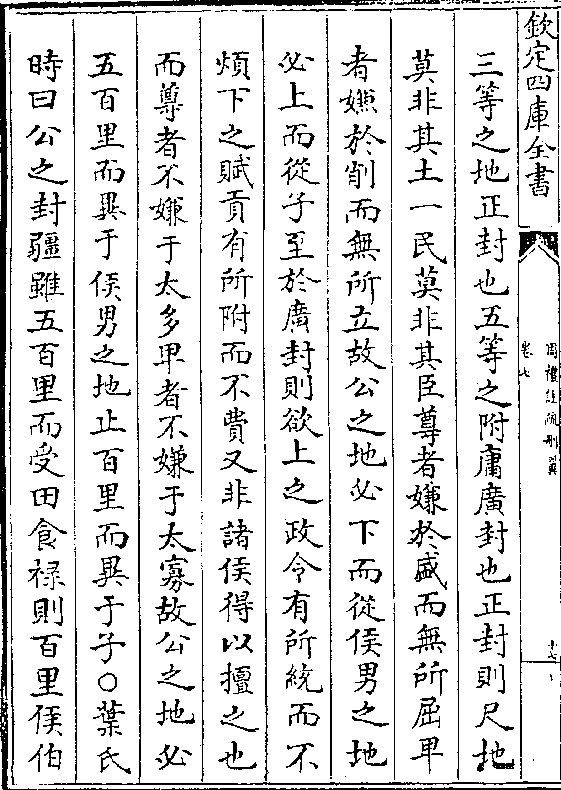 欽定四庫全書
周禮註疏刪翼
卷七
十七
三等之地正封也五等之附庸廣封也正封則尺地
莫非其土一民莫非其臣尊者嫌於盛而無所屈卑
者嫌於削而無所立故公之地必下而從侯男之地
必上而從子至於廣封則欲上之政令有所統而不
煩下之賦貢有所附而不費又非諸侯得以擅之也
而尊者不嫌于太多卑者不嫌于太寡故公之地必
五百里而異于侯男之地止百里而異于子○葉氏
時曰公之封疆雖五百里而受田食禄則百里侯伯